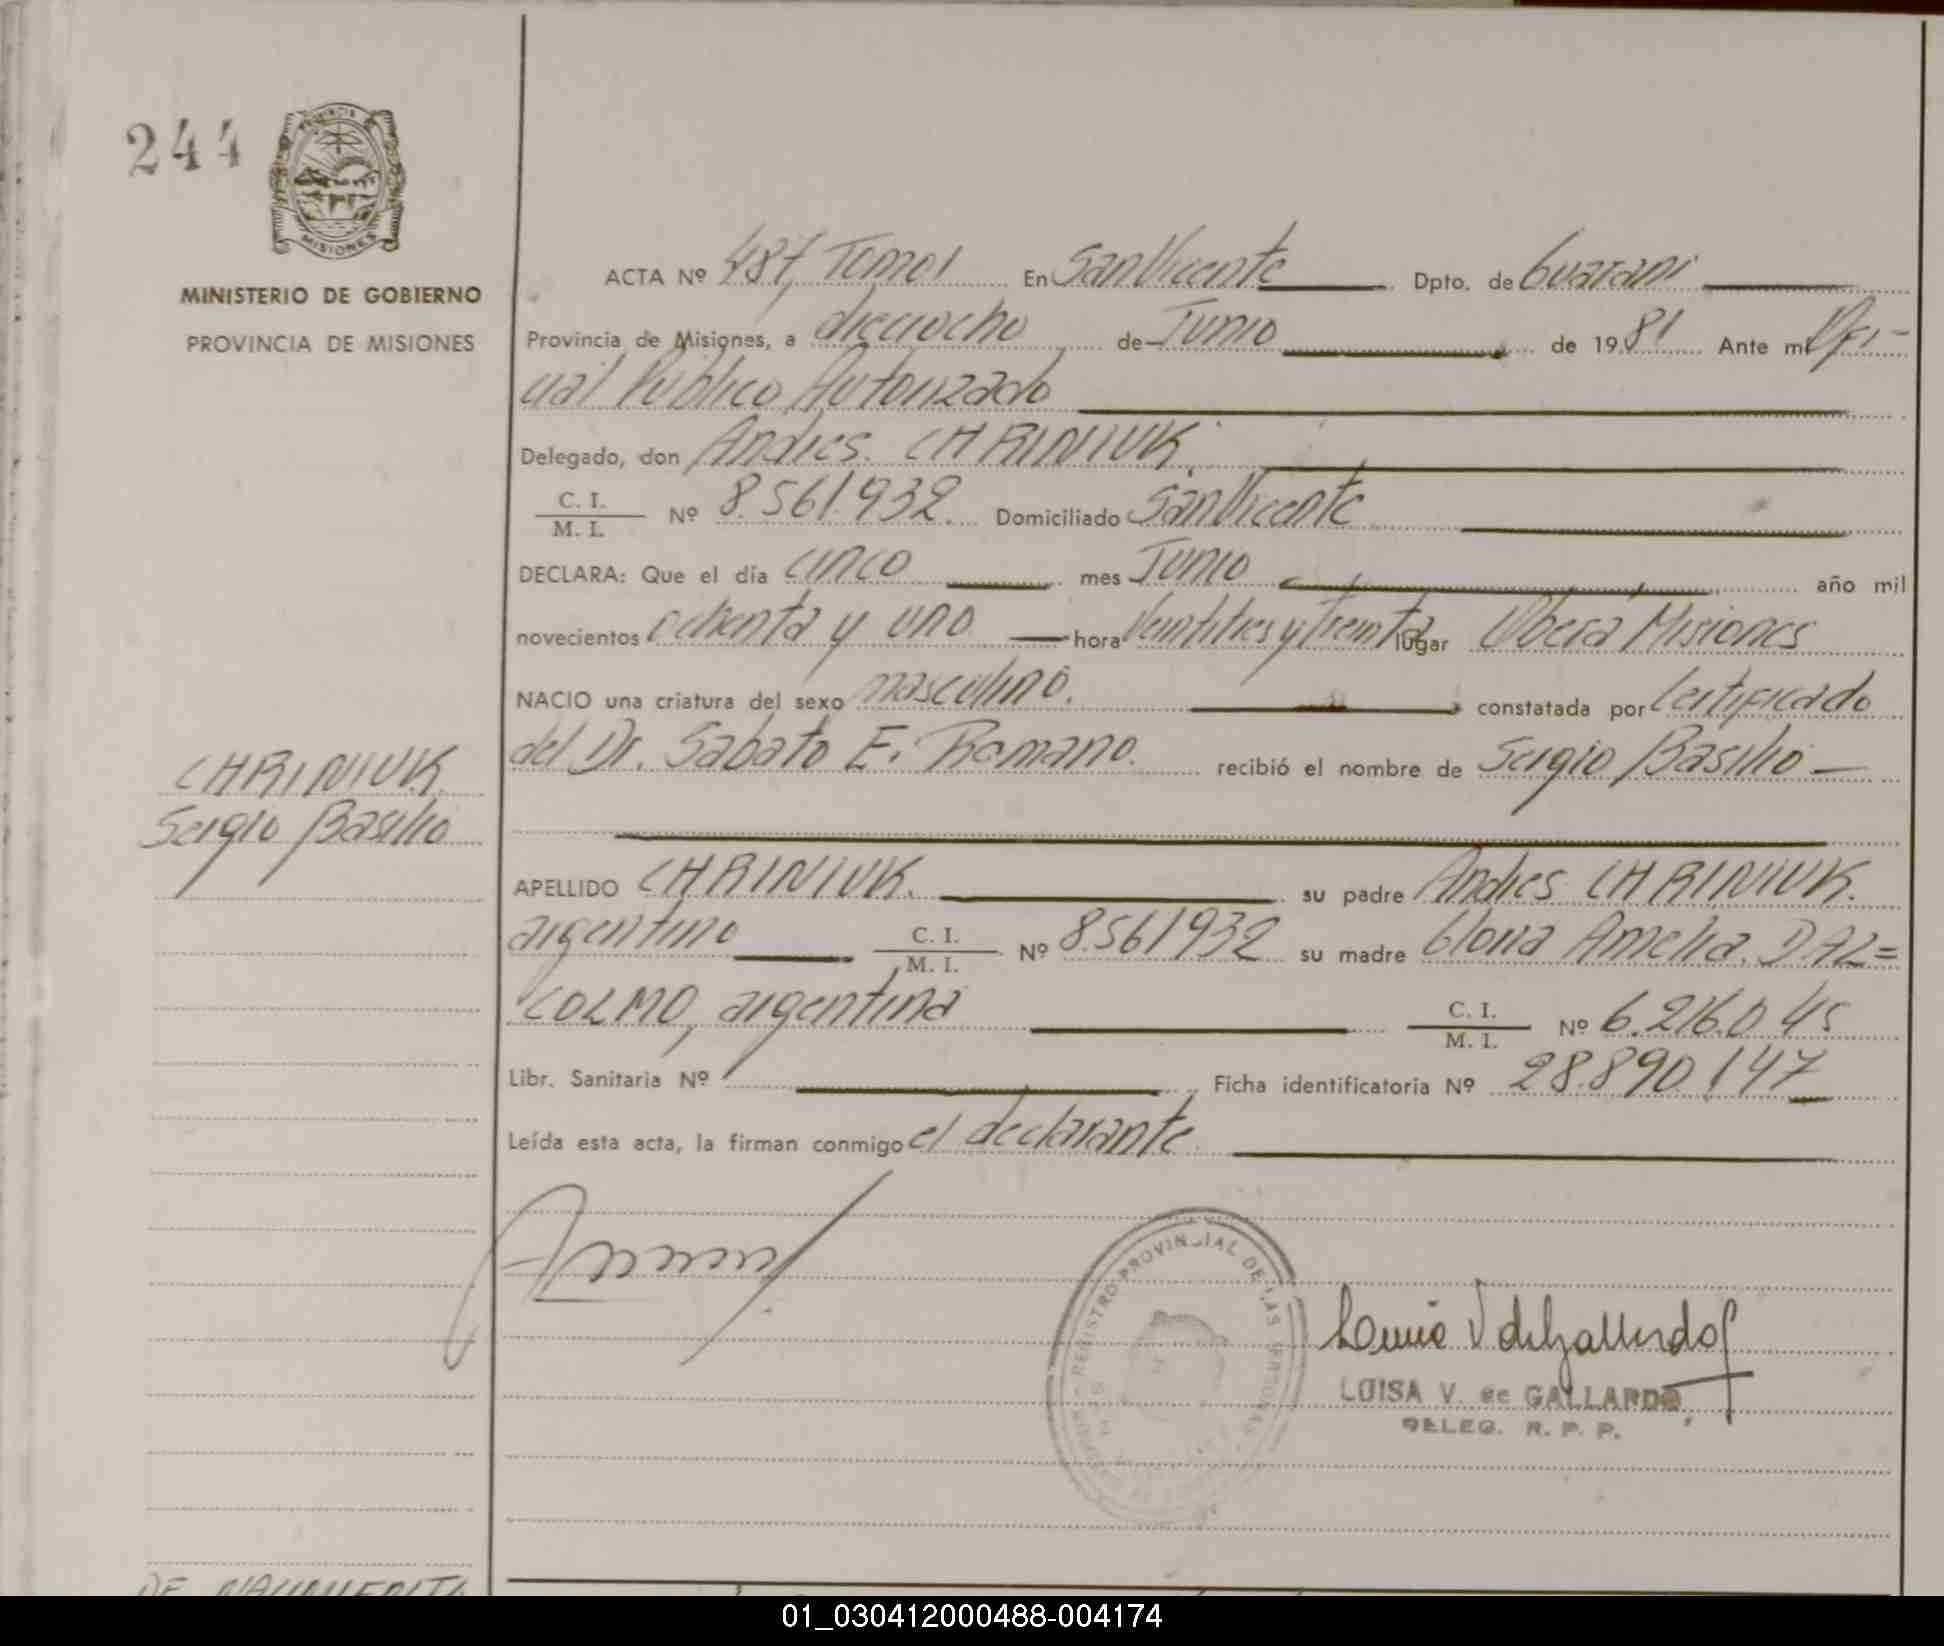 244
PROVINCIA DE
MISIONES
MINISTERIO DE GOBIERNO
PROVINCIA DE MISIONES
CHRINIUK.
Sergio Basilio
ACTA Nº 487, Tomo I En San Vicente Dpto. de Guarani
Provincia de Misiones, a dieciocho de Junio de 1981 Ante mi Ofi-
cial Público Autorizado
Delegado, don Andres CHRINIUK.
C. I.
M. I. Nº 8.561.932. Domiciliado San Vicente
DECLARA: Que el día cinco mes Junio año mil
novecientos ochenta y uno hora veintitres y treinta lugar Oberá Misiones
NACIO una criatura del sexo masculino. constatada por Certificado
del Dr. Sabato E. Romano. recibió el nombre de Sergio Basilio —
APELLIDO CHRINIUK. su padre Andres CHRINIUK.
argentino C. I. M. I. Nº 8.561932 su madre Gloria Amelia. DAL=
COLMO, argentina C. I. M. I. Nº 6.216.045
Libr. Sanitaria Nº Ficha identificatoria Nº 28.890.147
Leída esta acta, la firman conmigo el declarante.
REGISTRO PROVINCIAL DE LAS PERSONAS
Luisa V de Gallardo
LUISA V. de GALLARDO
DELEG. R. P. P.
DE NACIMIENTO
01_030412000488-004174